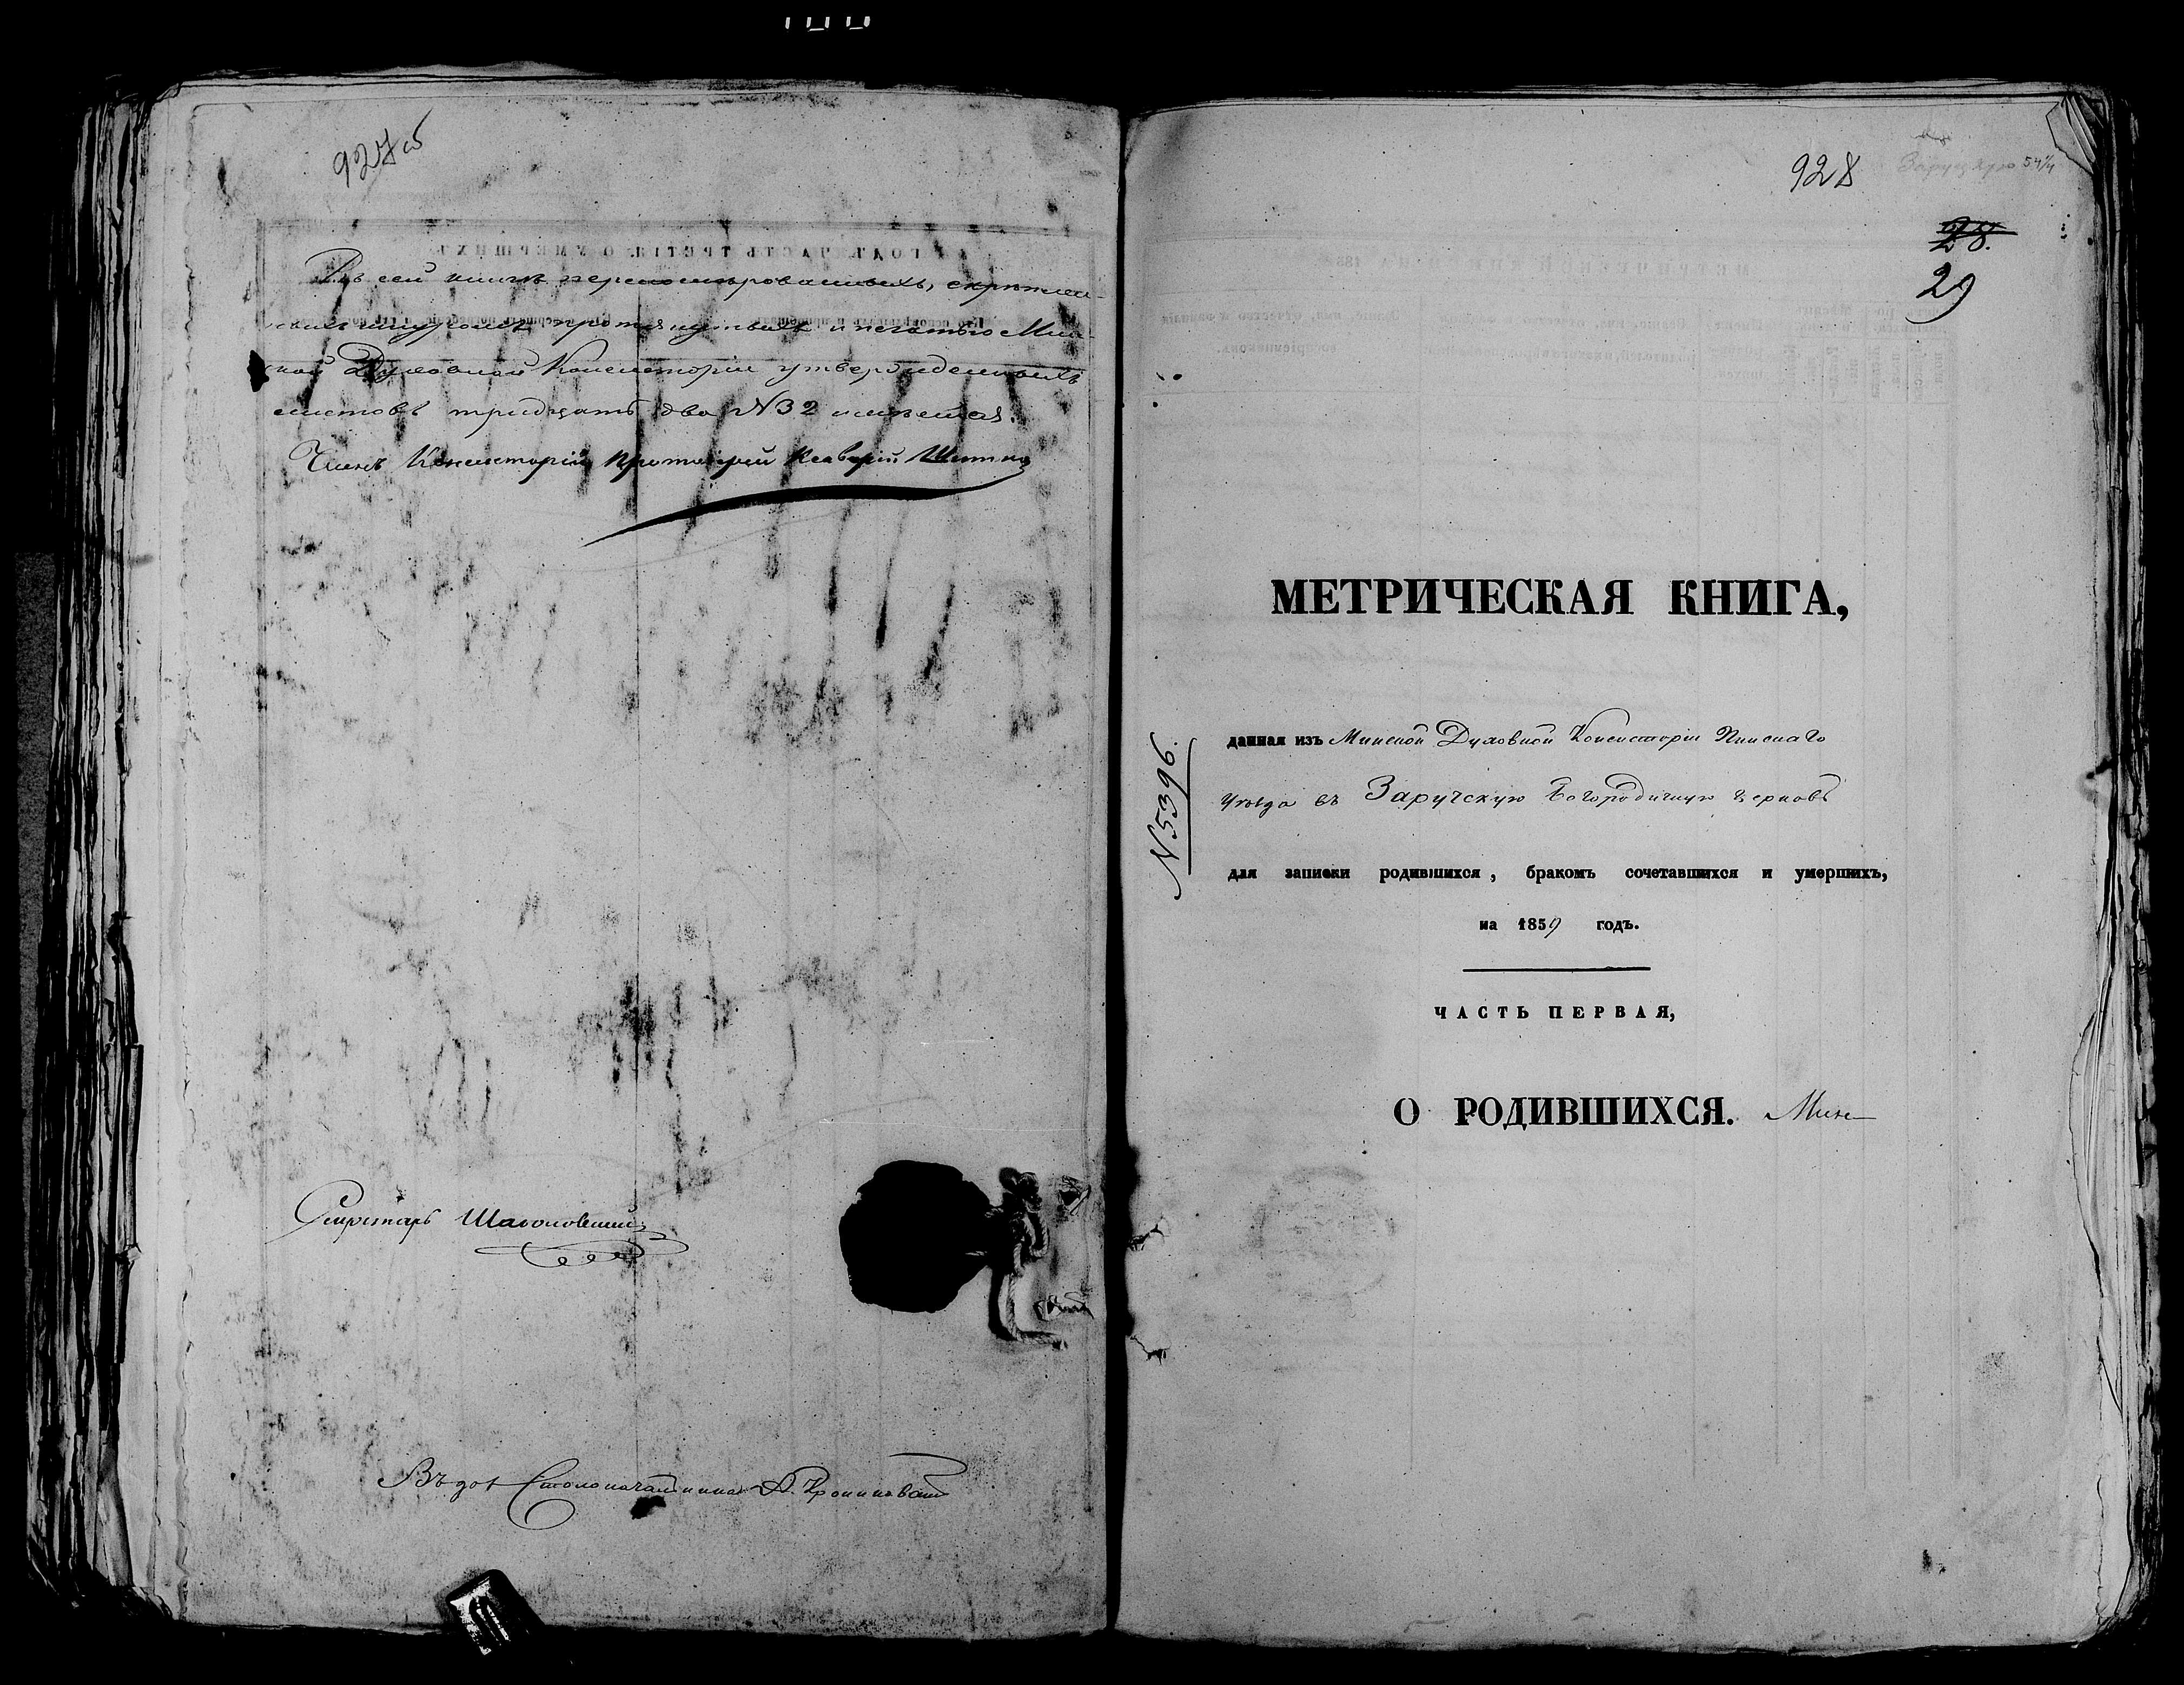 927 об
Въ сей книгѣ перенумерованныхъ, скрѣплен-
шнуромъ протянутыхъ и печатью Мин-
ской Духовной Консисторіи утвержденныхъ
листовъ тридцать два №32 имѣется.
Членъ Консисторіи Протоіерей
Секретарь
Столоначальника
928
Заруцкую
28.
29
МЕТРИЧЕСКАЯ КНИГА,
№5396.
данная изъ Минской Духовной Консисторіи Пинскаго
Уѣзда въ Заручскую Богородичную церковь
для записки родившихся, бракомъ сочетавшихся и умершихъ,
на 1859 годъ.
ЧАСТЬ ПЕРВАЯ,
О РОДИВШИХСЯ. Мин